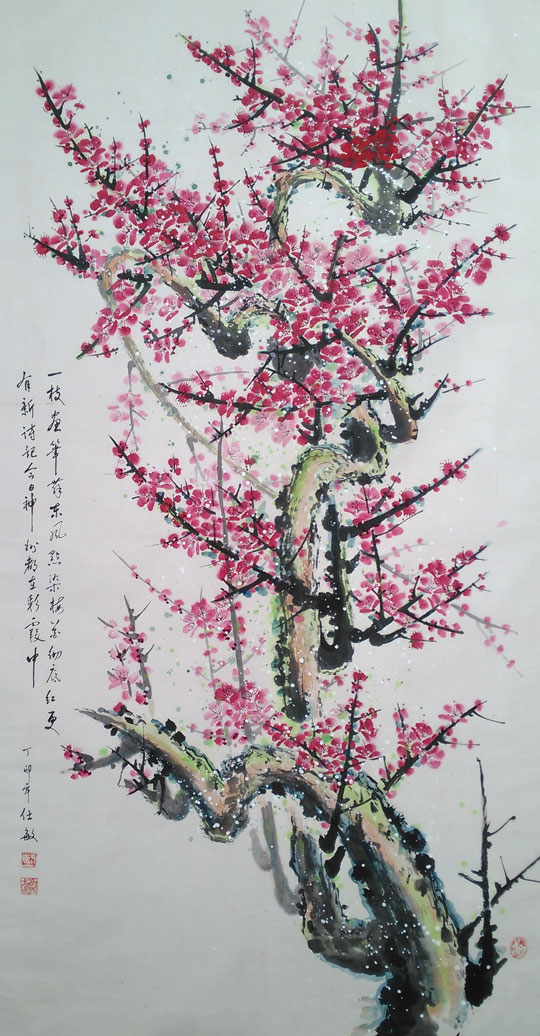 一枝画笔蘸东风點染梅花彻底红更
有新诗記今日神州都在彩霞中
丁卯年仕敏